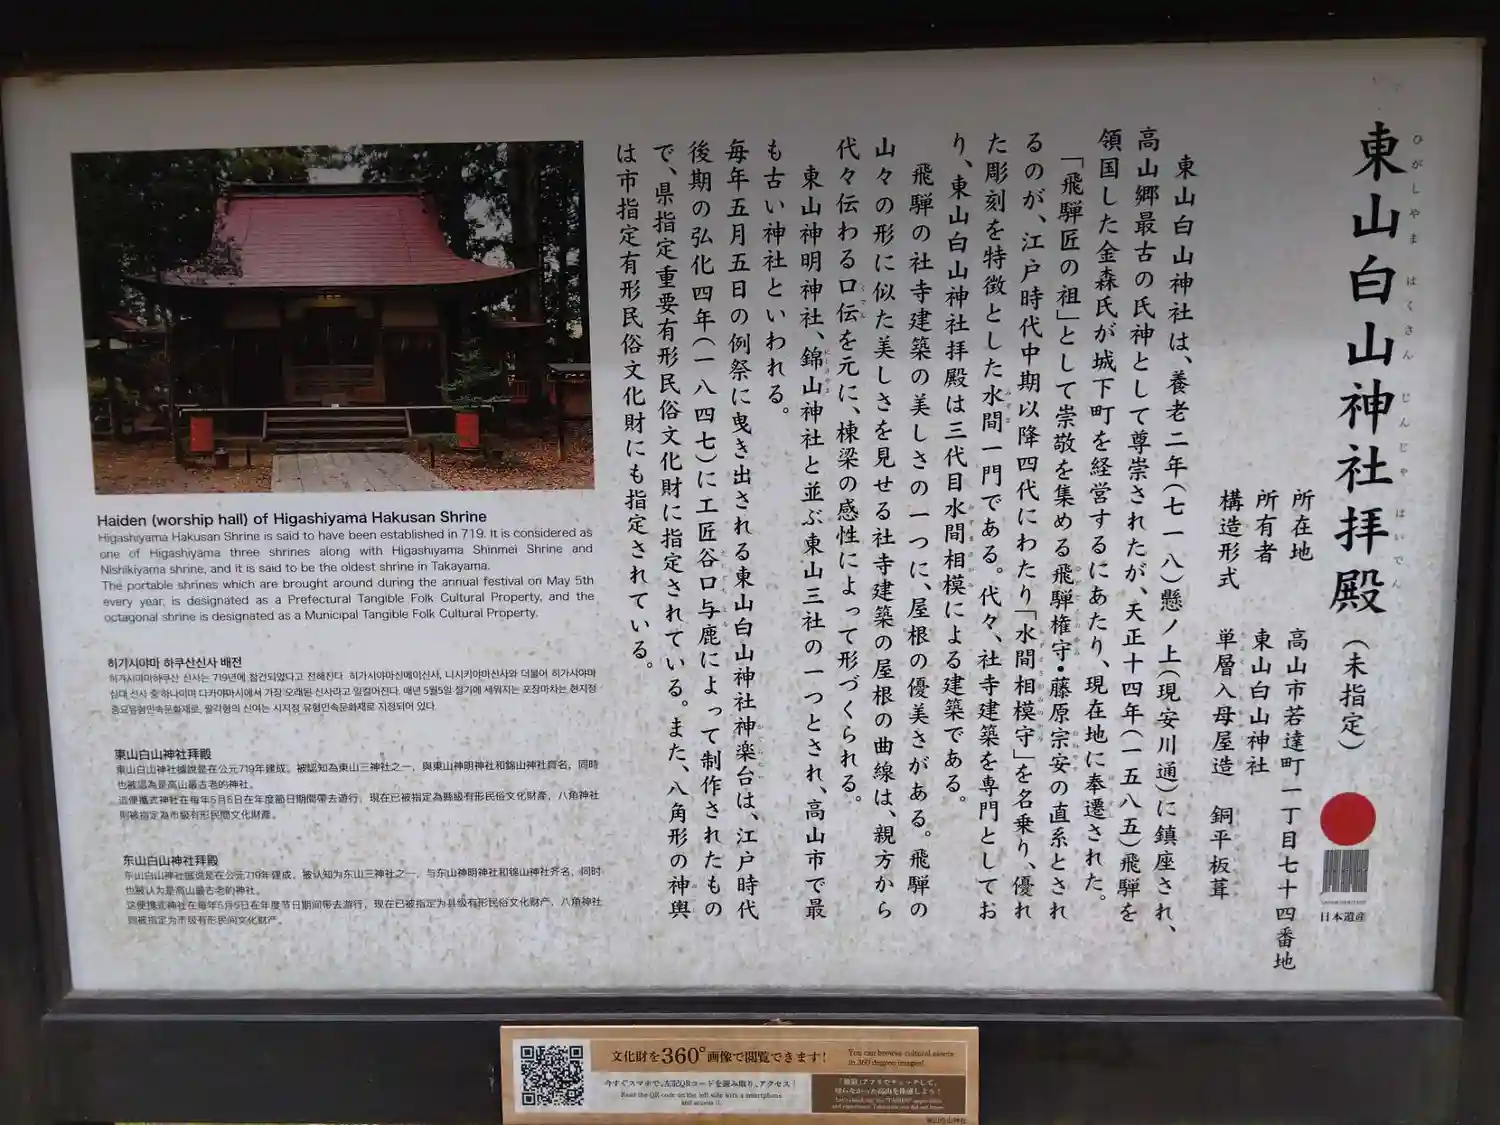 東山白山神社拝殿(未指定)
ひがしやま はくさん じんじゃ はいでん
所在地 高山市若達町一丁目七十四番地
所有者 東山白山神社
構造形式 単層入母屋造 銅平板葺
東山白山神社は、養老二年(七一八)懸ノ上(現安川通)に鎮座され、
高山郷最古の氏神として尊崇されたが、天正十四年(一五八五)飛騨を
領国した金森氏が城下町を経営するにあたり、現在地に奉遷された。
「飛騨匠の祖」として崇敬を集める飛騨権守・藤原宗安の直系とされ
るのが、江戸時代中期以降四代にわたり「水間相模守」を名乗り、優れ
た彫刻を特徴とした水間一門である。代々、社寺建築を専門としてお
り、東山白山神社拝殿は三代目水間相模による建築である。
飛騨の社寺建築の美しさの一つに、屋根の優美さがある。飛騨の
山々の形に似た美しさを見せる社寺建築の屋根の曲線は、親方から
代々伝わる口伝を元に、棟梁の感性によって形づくられる。
東山神明神社、錦山神社と並ぶ東山三社の一つとされ、高山市で最
も古い神社といわれる。
毎年五月五日の例祭に曳き出される東山白山神社神楽台は、江戸時代
後期の弘化四年(一八四七)に工匠谷口与鹿によって制作されたもの
で、県指定重要有形民俗文化財に指定されている。また、八角形の神輿
は市指定有形民俗文化財にも指定されている。
Haiden (worship hall) of Higashiyama Hakusan Shrine
Higashiyama Hakusan Shrine is said to have been established in 719. It is considered as
one of Higashiyama three shrines along with Higashiyama Shinmei Shrine and
Nishikiyama shrine, and it is said to be the oldest shrine in Takayama.
The portable shrines which are brought around during the annual festival on May 5th
every year, is designated as a Prefectural Tangible Folk Cultural Property, and the
octagonal shrine is designated as a Municipal Tangible Folk Cultural Property.
히가시야마 하쿠산신사 배전
히가시야마하쿠산 신사는 719년에 창건되었다고 전해진다. 히가시야마신메이신사, 니시키야마신사와 더불어 히가시야마
삼대 신사 중 하나이며 다카야마시에서 가장 오래된 신사라고 일컬어진다. 매년 5월5일 절기에 세워지는 포장마차는 현지정
중요유형민속문화재로, 팔각형의 신여는 시지정 유형민속문화재로 지정되어 있다.
東山白山神社拜殿
東山白山神社據說是在公元719年建成。被認知為東山三神社之一，與東山神明神社和錦山神社齊名。同時
也被認為是高山最古老的神社。
這便攜式神社在每年5月5日在年度節日期間帶去遊行，現在已被指定為縣級有形民俗文化財產，八角神社
則被指定為市級有形民間文化財產。
东山白山神社拜殿
东山白山神社据说是在公元719年建成。被认知为东山三神社之一，与东山神明神社和锦山神社齐名，同时
也被认为是高山最古老的神社。
这便携式神社在每年5月5日在年度节日期间带去游行，现在已被指定为县级有形民俗文化财产，八角神社
则被指定为市级有形民间文化财产。
日本遺産
文化財を360°画像で閲覧できます!
You can browse cultural assets
in 360 degree images!
今すぐスマホで、左記QRコードを読み取り、アクセス!
Read the QR code on the left side with a smartphone
and access it.
東山白山神社